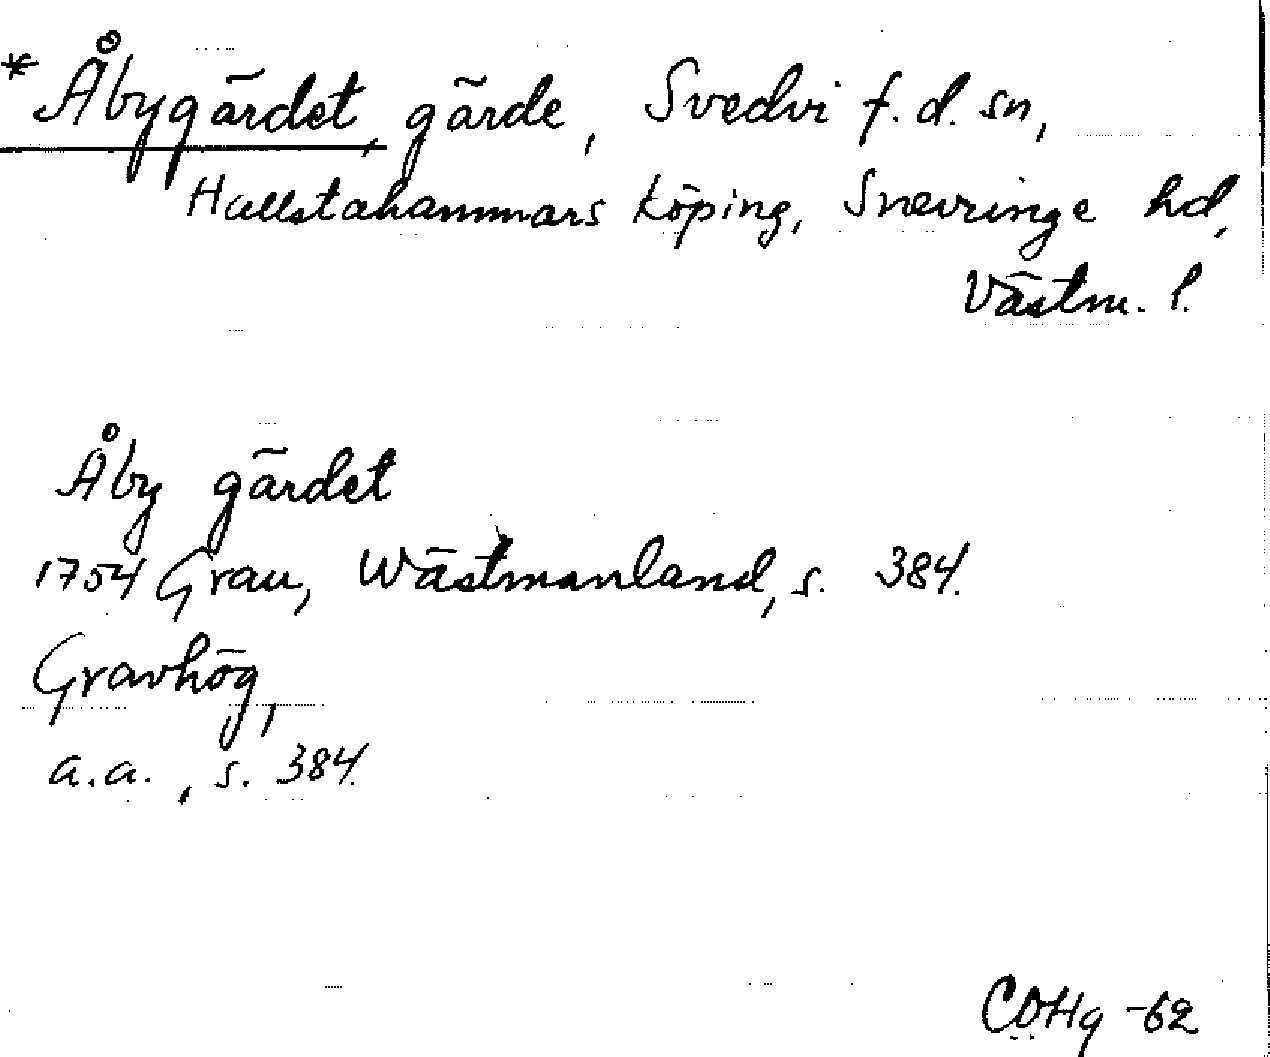 *Åbygärdet, gärde, Svedvi f.d. sn,
Hallstahammars köping, Snevringe hd,
Västm. l.
Åby gärdet
1754 Grau, Wästmanland, s. 384.
Gravhög,
a.a., s. 384.
COHg -62